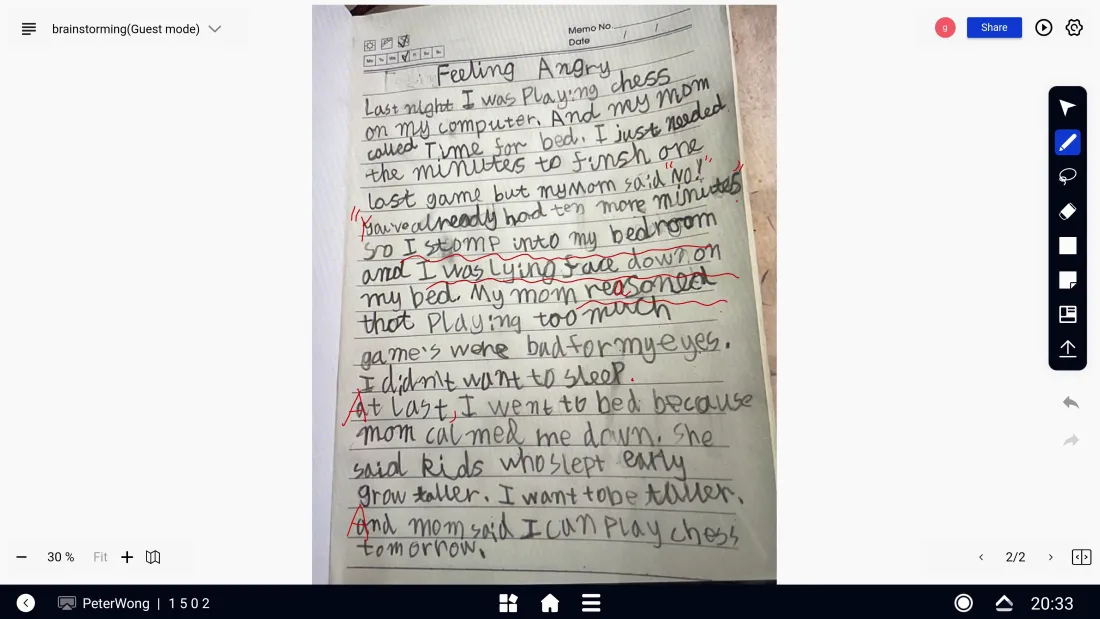 brainstorming(Guest mode)
g
Share
Memo No.
Date / /
Mo Tu We Fr Sa Su
Feeling Angry
Last night I was Playing chess
on my computer. And my mom
called Time for bed. I just needed
the minutes to finsh one
last game but my Mom said "NO!"
"You've already had ten more minutes"
so I stomp into my bedroom
and I was lying face down on
my bed. My mom reasoned
that Playing too much
game's were bad for my eyes.
I didn't want to sleep.
At last, I went to bed because
mom calmed me down. She
said kids who slept early
grow taller. I want to be taller.
And mom said I can play chess
tomorrow.
30 %
Fit
2/2
PeterWong | 1 5 0 2
20:33